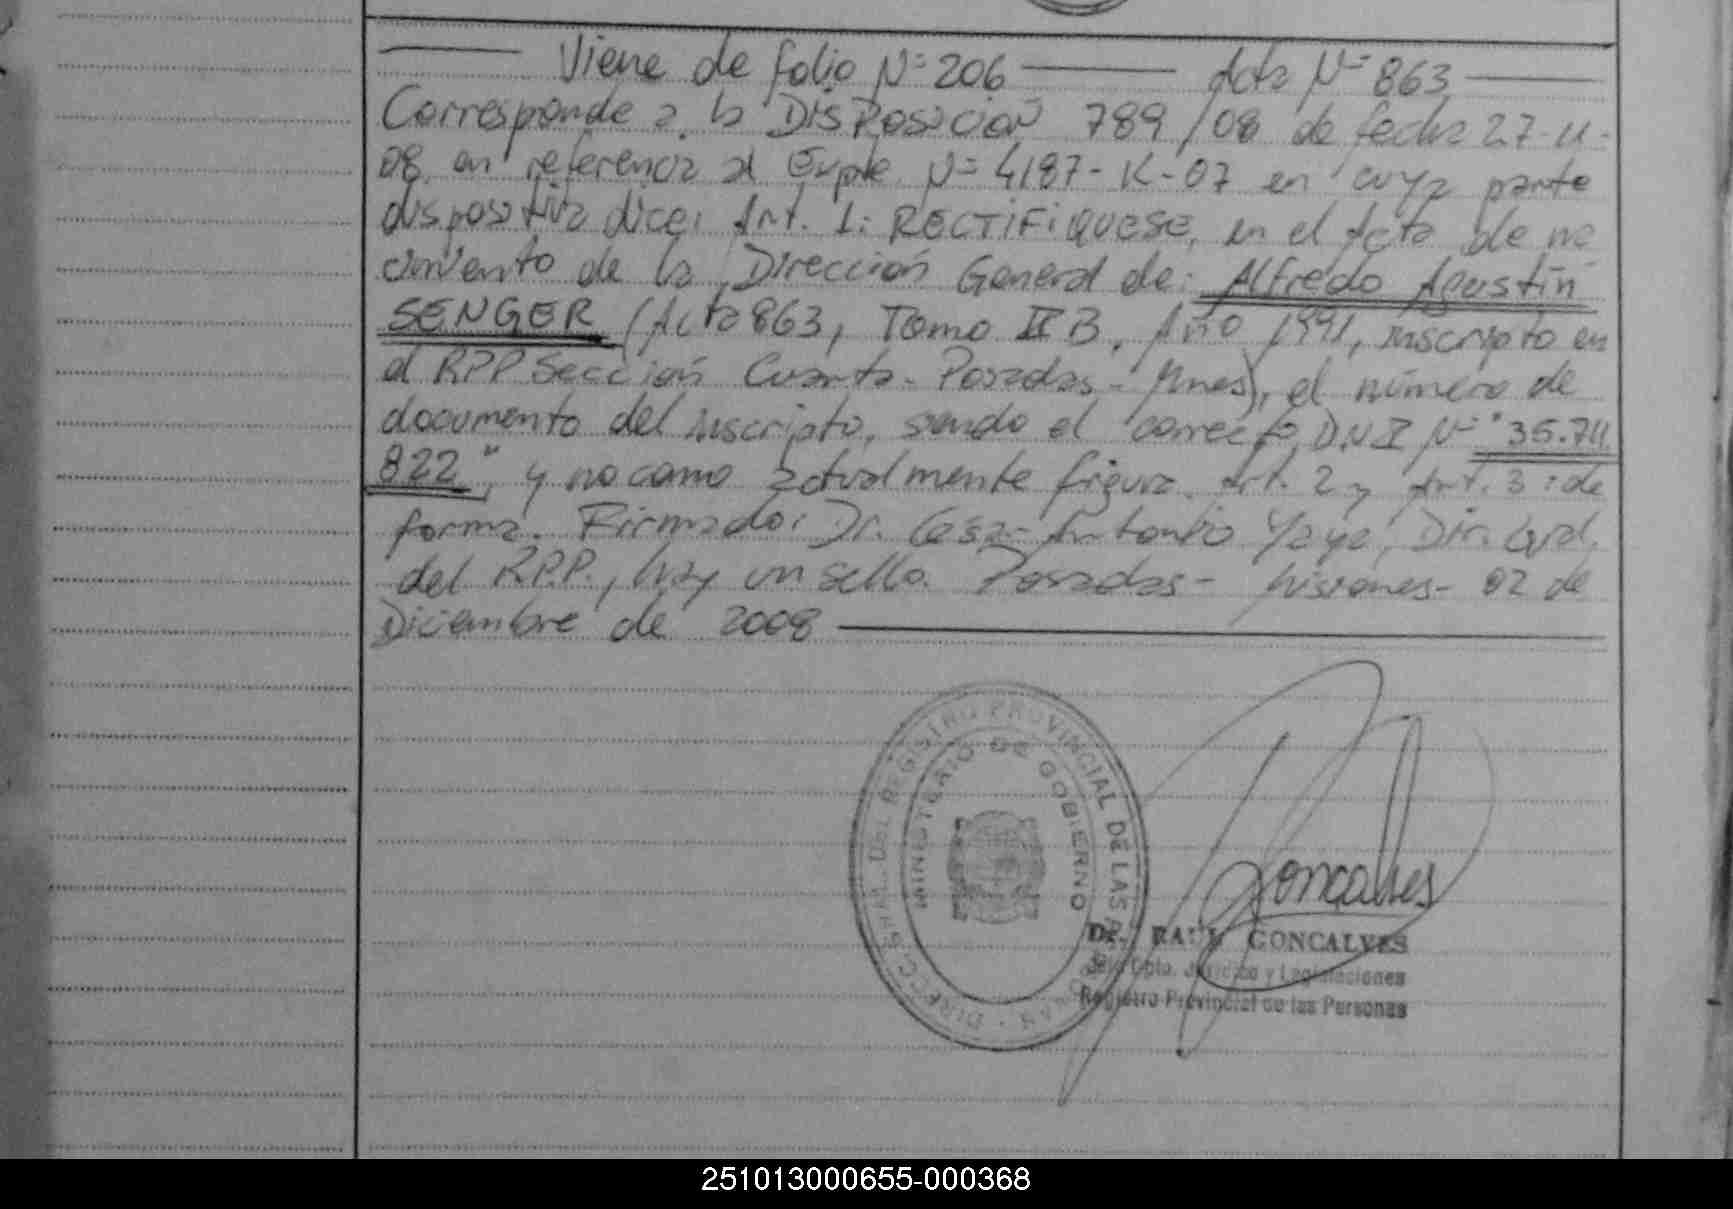 Viene de folio Nº 206 Acta Nº 863
Corresponde a la DISPOSICIÓN 789/08 de fecha 27-11-
08, en referencia al Expte Nº 4187-K-07 en cuya parte
dispositiva dice: Art. 1: RECTIFIQUESE, en el Acta de na
cimiento de la Dirección General de: Alfredo Agustín
SENGER (Acta 863, Tomo II B, Año 1991, inscripto en
el RPP Sección Cuarta - Posadas - Mnes), el número de
documento del inscripto, siendo el correcto, DNI Nº "35.711.
822", y no como actualmente figura. Art. 2 y Art. 3: de
forma. Firmado: Dr. Cesar Antonio Yaya, Dir. Gral.
del R.P.P., hay un sello. Posadas - Misiones - 02 de
Diciembre de 2008
DIRECC. GRAL. DEL REGISTRO PROVINCIAL DE LAS PERSONAS
MINISTERIO DE GOBIERNO
Goncalves
Dr. RAUL GONCALVES
Jefe Dpto. Jurídico y Legislaciones
Registro Provincial de las Personas
251013000655-000368